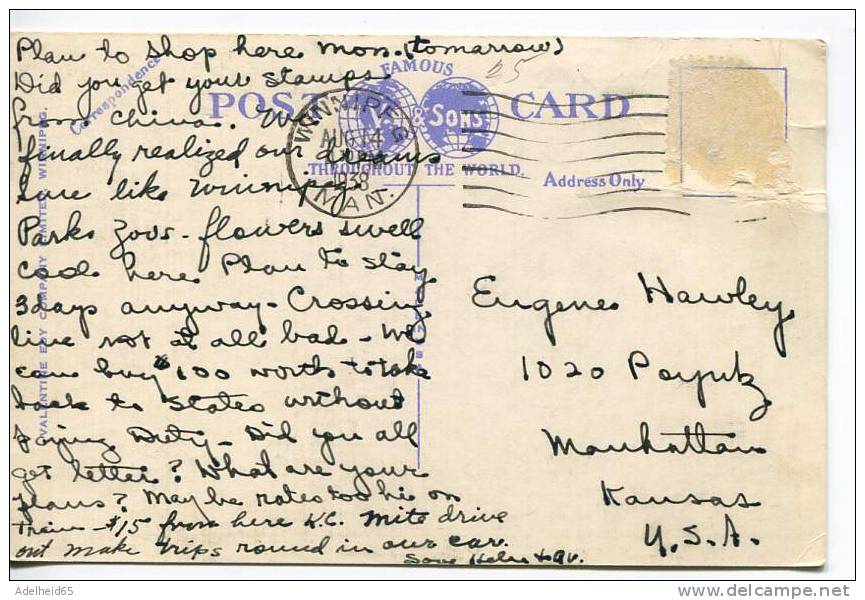 Plan to shop here Mon. (tomarrow)
Did you get your stamps
from China. We
finally realized our dreams
sure like Winnipeg.
Parks Zoos - flowers swell
cool here. Plan to stay
3 days anyway - Crossing
line not at all bad - We
can buy $100 worth to take
back to States without
paying Duty - Did you all
get letter? What are your
plans? May be rates too hi on
train - $15 from here K.C. Mite drive
out make trips round in our car.
Love Helen &
Correspondence
FAMOUS
POST CARD
& Sons
THROUGHOUT THE WORLD.
Address Only
25
WINNIPEG
AUG 14
1938
MAN.
VALENTINE EDY COMPANY LIMITED, WINNIPEG.
Eugene Hawley
1020 Poyntz
Manhattan
Kansas
U.S.A.
Adelheid65
delcampe.net